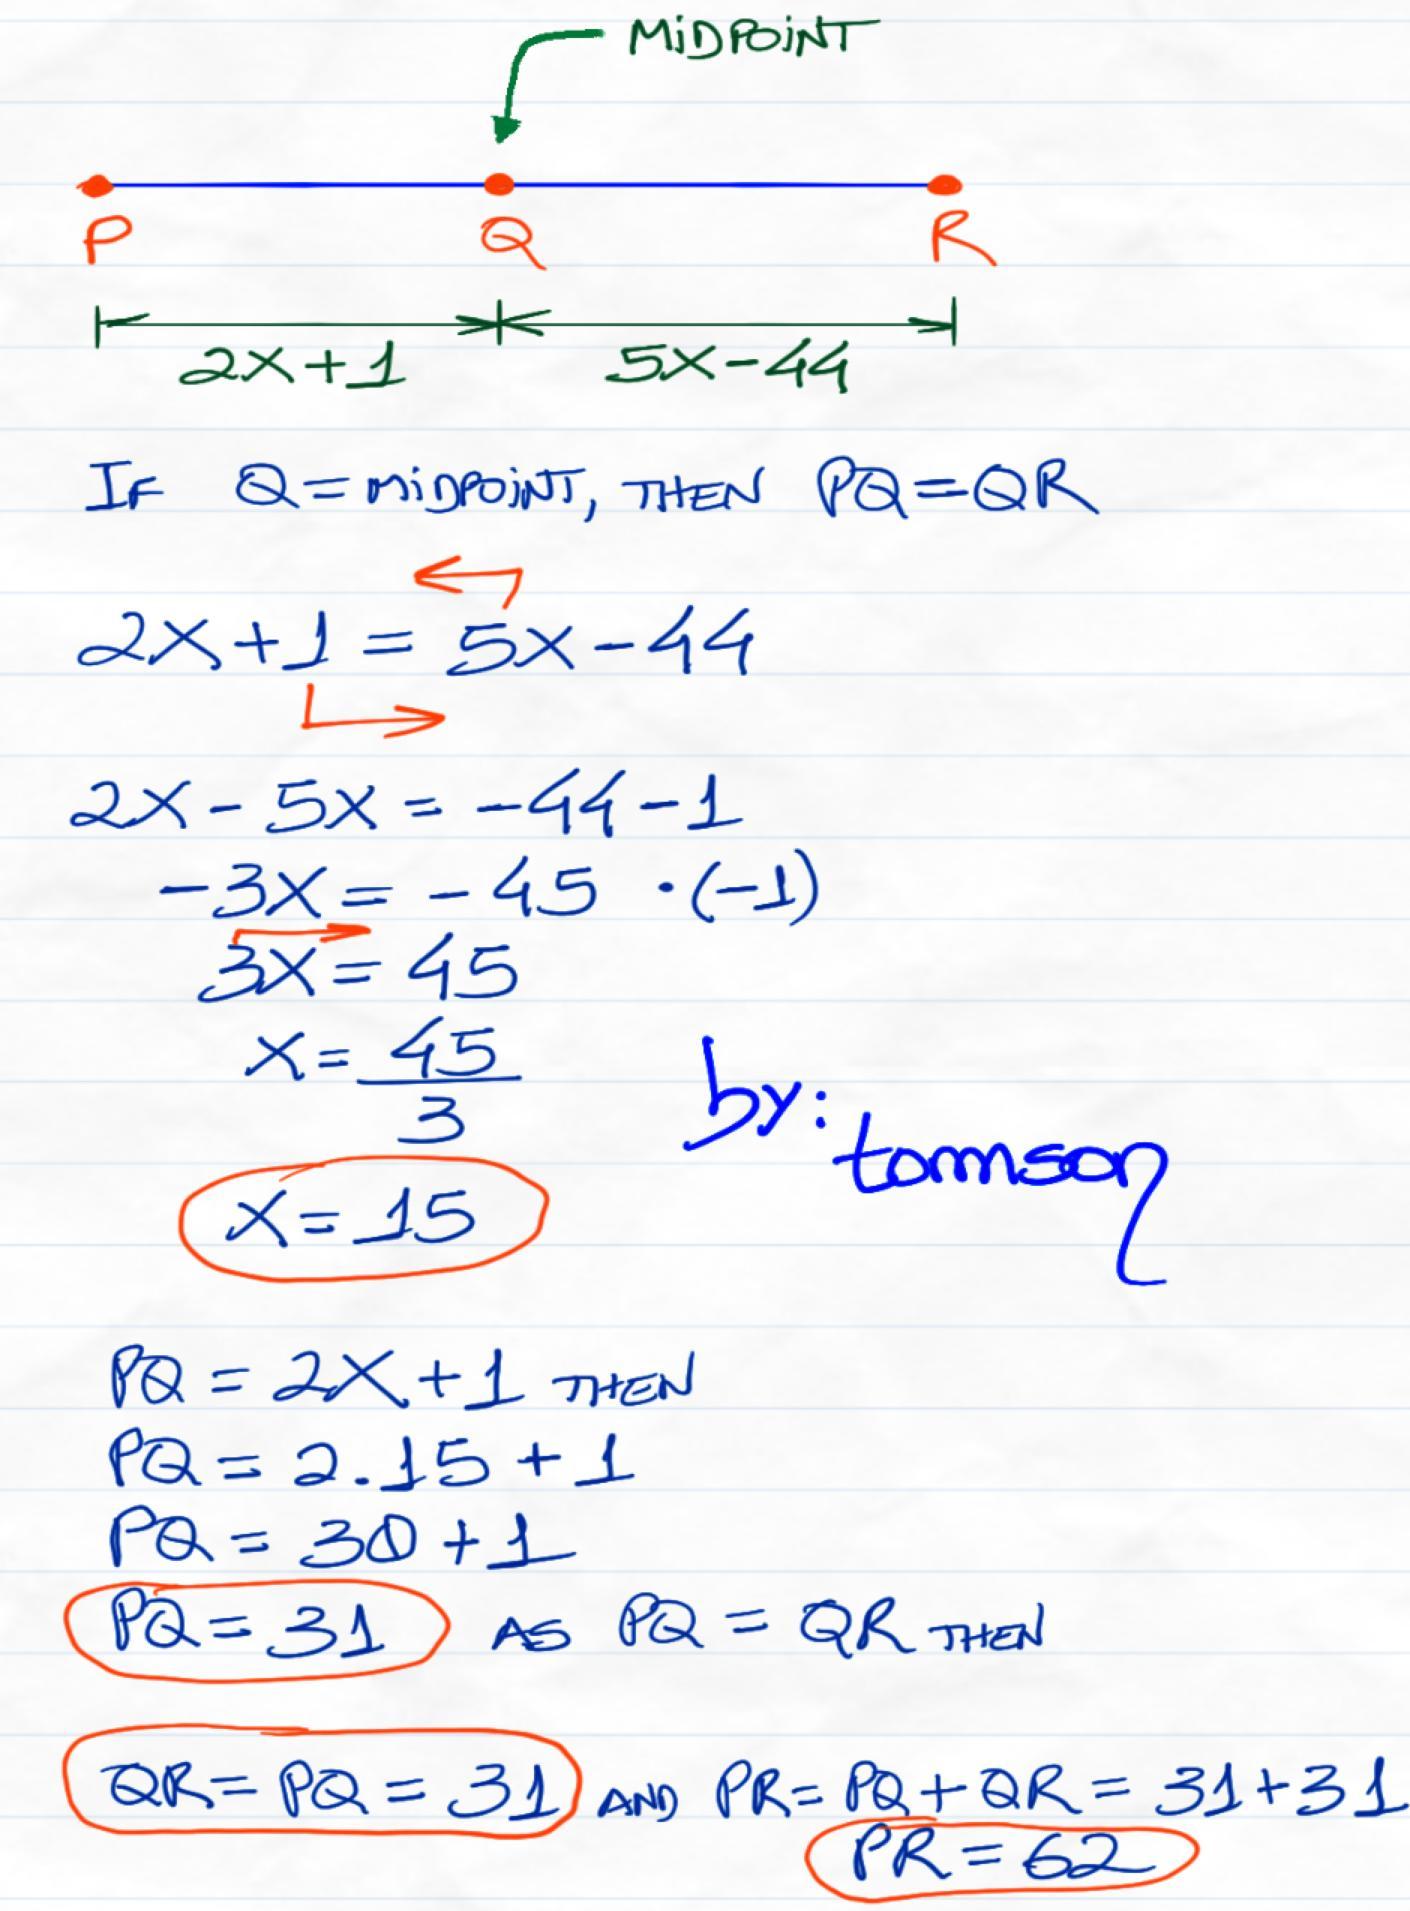 MiDPOiNT
P Q R
2X+1 5X-44
IF Q=MiDPOiNT, THEN PQ=QR
2X+1 = 5X-44
2X-5X = -44-1
-3X = -45 ·(-1)
3X = 45
X = 45
3
by:
tomson
X = 15
PQ = 2X+1 THEN
PQ = 2.15+1
PQ = 30+1
PQ = 31 AS PQ = QR THEN
QR = PQ = 31 AND PR = PQ+QR = 31+31
PR = 62